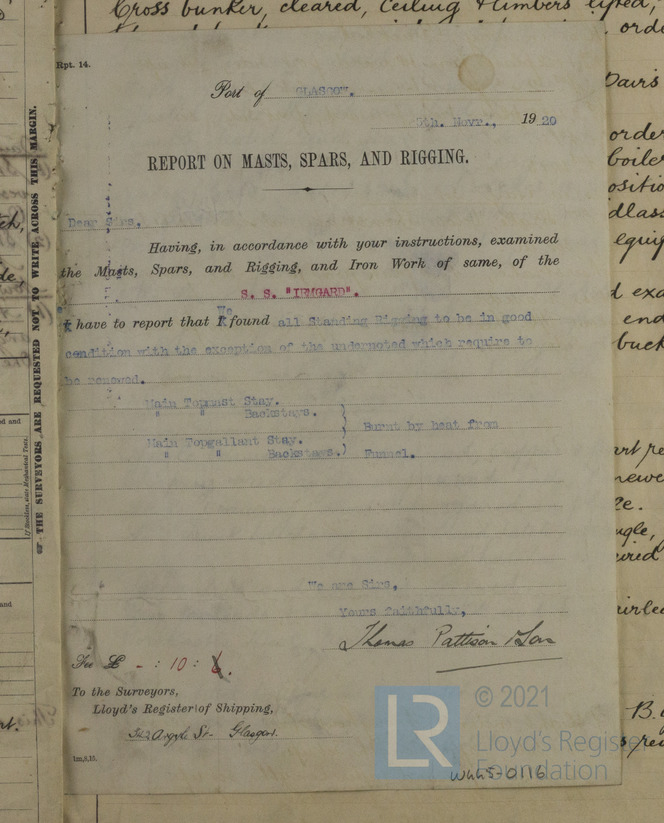 Cross bunker, cleared, Ceiling & limbers lifted,
Rpt. 14.
Port of GLASGOW.
5th. Novr., 1920
REPORT ON MASTS, SPARS, AND RIGGING.
Dear Sirs,
Having, in accordance with your instructions, examined
the Masts, Spars, and Rigging, and Iron Work of same, of the
S. S. "IRMGARD".
We
have to report that I found all Standing Rigging to be in good
condition with the exception of the undernoted which require to
be renewed.
Main Topmast Stay.
" " Backstays.
Burnt by heat from
Main Topgallant Stay.
" " Backstays.
Funnel.
We are Sirs,
Yours faithfully,
Thomas Pattison & Son
Fee £ - : 10 : 6.
To the Surveyors,
Lloyd's Register of Shipping,
342 Argyle St. Glasgow.
1m,9,15.
THE SURVEYORS ARE REQUESTED NOT TO WRITE ACROSS THIS MARGIN.
LR
© 2021
Lloyd's Register
Foundation
W445-0116